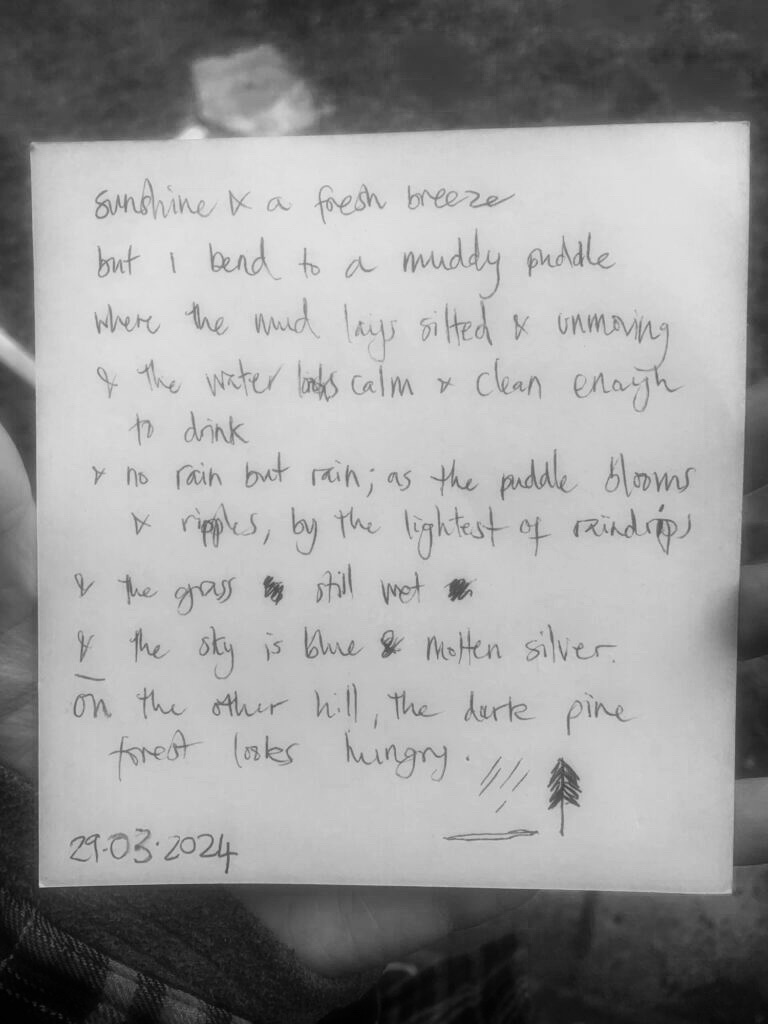 sunshine & a fresh breeze
but I bend to a muddy puddle
where the mud lays silted & unmoving
& the water looks calm & clean enough
to drink
& no rain but rain; as the puddle blooms
& ripples, by the lightest of raindrops
& the grass still wet
& the sky is blue & molten silver.
On the other hill, the dark pine
forest looks hungry.
29.03.2024